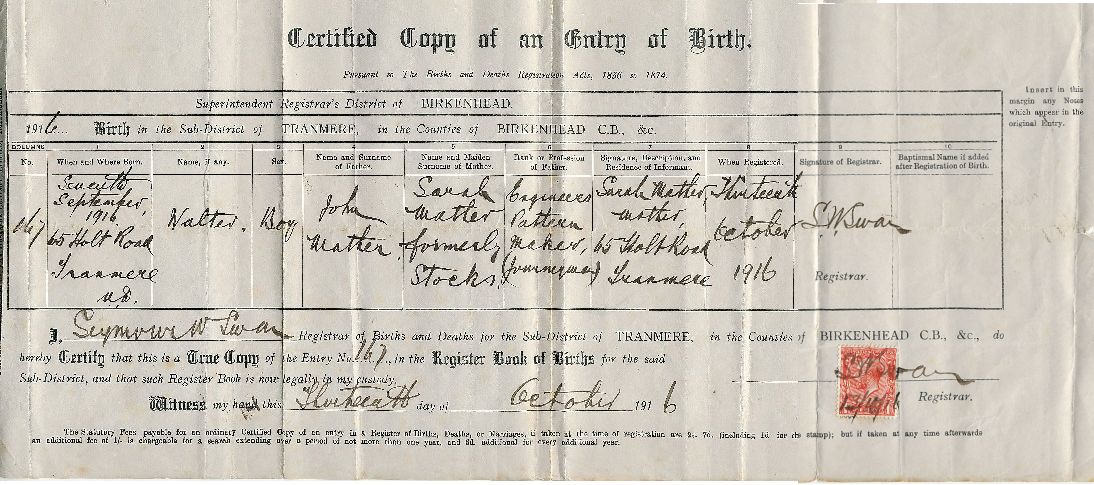 Certified Copy of an Entry of Birth.
Pursuant to The Births and Deaths Registration Acts, 1836 to 1874.
Superintendent Registrar's District of BIRKENHEAD.
Insert in this
margin any Notes
which appear in the
original Entry.
1916... Birth in the Sub-District of TRANMERE, in the Counties of BIRKENHEAD C.B., &c.
COLUMNS 1 2 3 4 5 6 7 8 9 10
No. When and Where Born. Name, if any. Sex. Name and Surname of Father. Name and Maiden Surname of Mother. Rank or Profession of Father. Signature, Description, and Residence of Informant. When Registered. Signature of Registrar. Baptismal Name if added after Registration of Birth.
167
Seventh
September,
1916
65 Holt Road
Tranmere
u.d.
Walter.
Boy
John
Mather
Sarah
Mather
formerly
Stocks
Engineers
Pattern
Maker,
(Journeyman)
Sarah Mather,
Mother,
65 Holt Road
Tranmere
Thirteenth
October
1916
S.W. Swan
Registrar.
I, Seymour W Swan Registrar of Births and Deaths for the Sub-District of TRANMERE, in the Counties of BIRKENHEAD C.B., &c., do
hereby Certify that this is a True Copy of the Entry No. 167, in the Register Book of Births for the said
Sub-District, and that such Register Book is now legally in my custody.
Witness my hand this Thirteenth day of October 1916
S W Swan
13/10/16
Registrar.
The Statutory Fees payable for an ordinary Certified Copy of an entry in a Register of Births, Deaths, or Marriages, if taken at the time of registration are 2s. 7d. (including 1d for the stamp); but if taken at any time afterwards
an additional fee of 1/- is chargeable for a search extending over a period of not more than one year, and 6d. additional for every additional year.